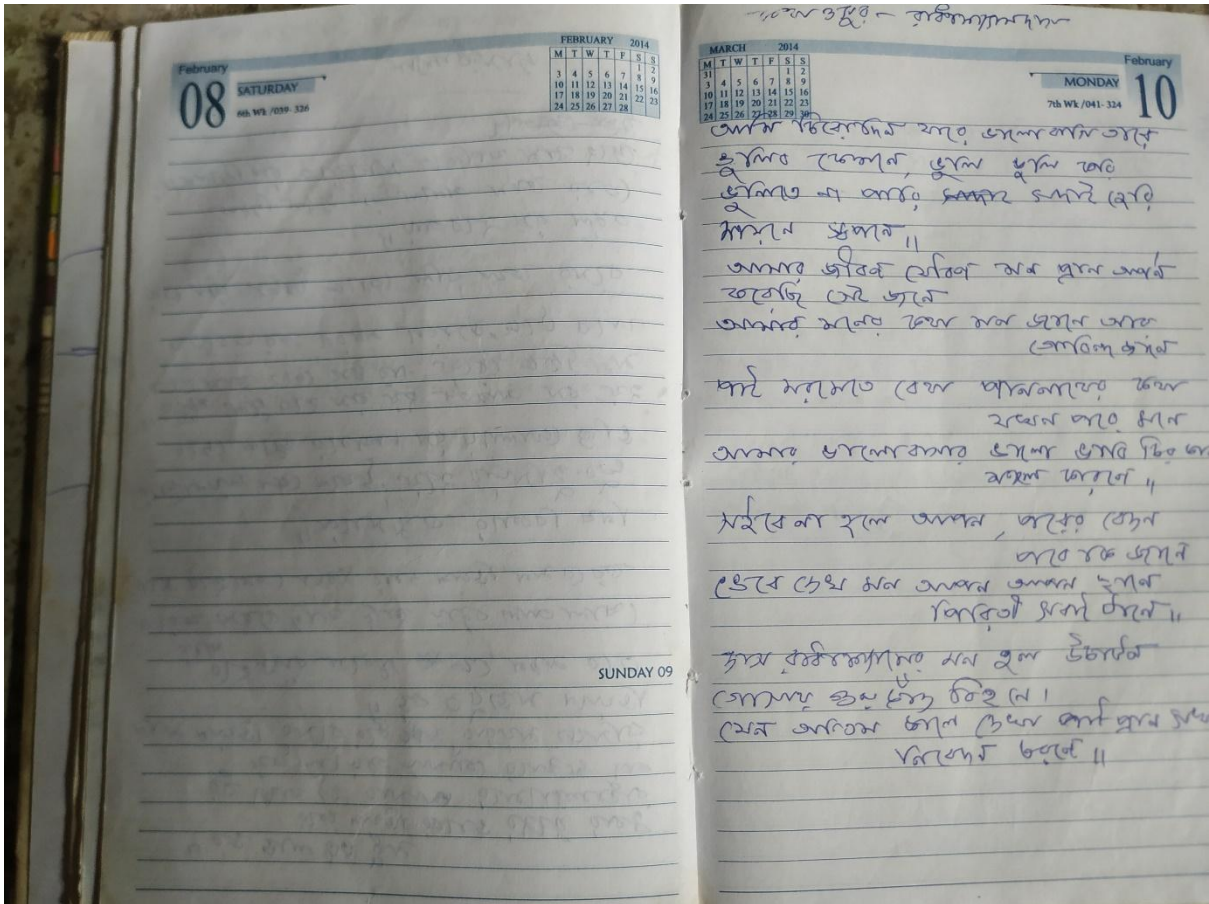 February
08
SATURDAY
6th Wk /039- 326
FEBRUARY 2014
M T W T F S S
1 2
3 4 5 6 7 8 9
10 11 12 13 14 15 16
17 18 19 20 21 22 23
24 25 26 27 28
SUNDAY 09
MARCH 2014
M T W T F S S
31 1 2
3 4 5 6 7 8 9
10 11 12 13 14 15 16
17 18 19 20 21 22 23
24 25 26 27 28 29 30
February
10
MONDAY
7th Wk /041- 324
আমি চিরোদিন যারে ভালোবাসি তারে
ভুলিব কেমনে, ভুলি ভুলি করি
ভুলিতে না পারি সদাই হেরি
নয়নে স্বপনে॥
আমার জীবন যৌবন মন প্রান অর্পন
করেছি সেই জনে
আমার মনের কথা মন জানে আর
জানে
পাই মরমেতে বেথা প্রাননাথের কথা
যখন পরে মনে
আমার ভালোবাসার ভালো ভাবি চির
করনে॥
সইবে না হলে আপন, পরের বেদন
পরে কি জানে
ভেবে দেখ মন আপন আপন
পিরিতী সবাই টানে॥
দাস মন হল উচাটন
গোসাই গুরু চাঁদ বিহনে।
যেন অন্তিম কালে দেখা পাই প্রান সখা
নিবেদন চরনে॥